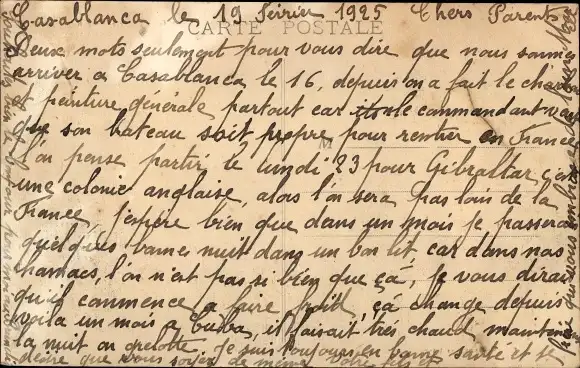 Casablanca le 19 Février 1925 Chers Parents
CARTE POSTALE
Deux mots seulement pour vous dire que nous sommes
arriver a Casablanca le 16, depuis on a fait le charbon
et peinture générale partout car le commandant veut
que son bateau soit propre pour rentrer en France
l'on pense partir le lundi 23 pour Gibraltar, c'est
une colonie anglaise, alors l'on sera pas loin de la
France, j'espère bien que dans un mois je passerai
quelques bonnes nuit dans un bon lit, car dans nos
hamacs, l'on n'est pas si bien que ça, Je vous dirai
qu'il commence a faire froid, ça change depuis
voila un mois a Cuba, il faisait très chaud maintenant
la nuit on grelotte. Je suis toujours en bonne santé et je
désire que vous soyez de même votre fils et